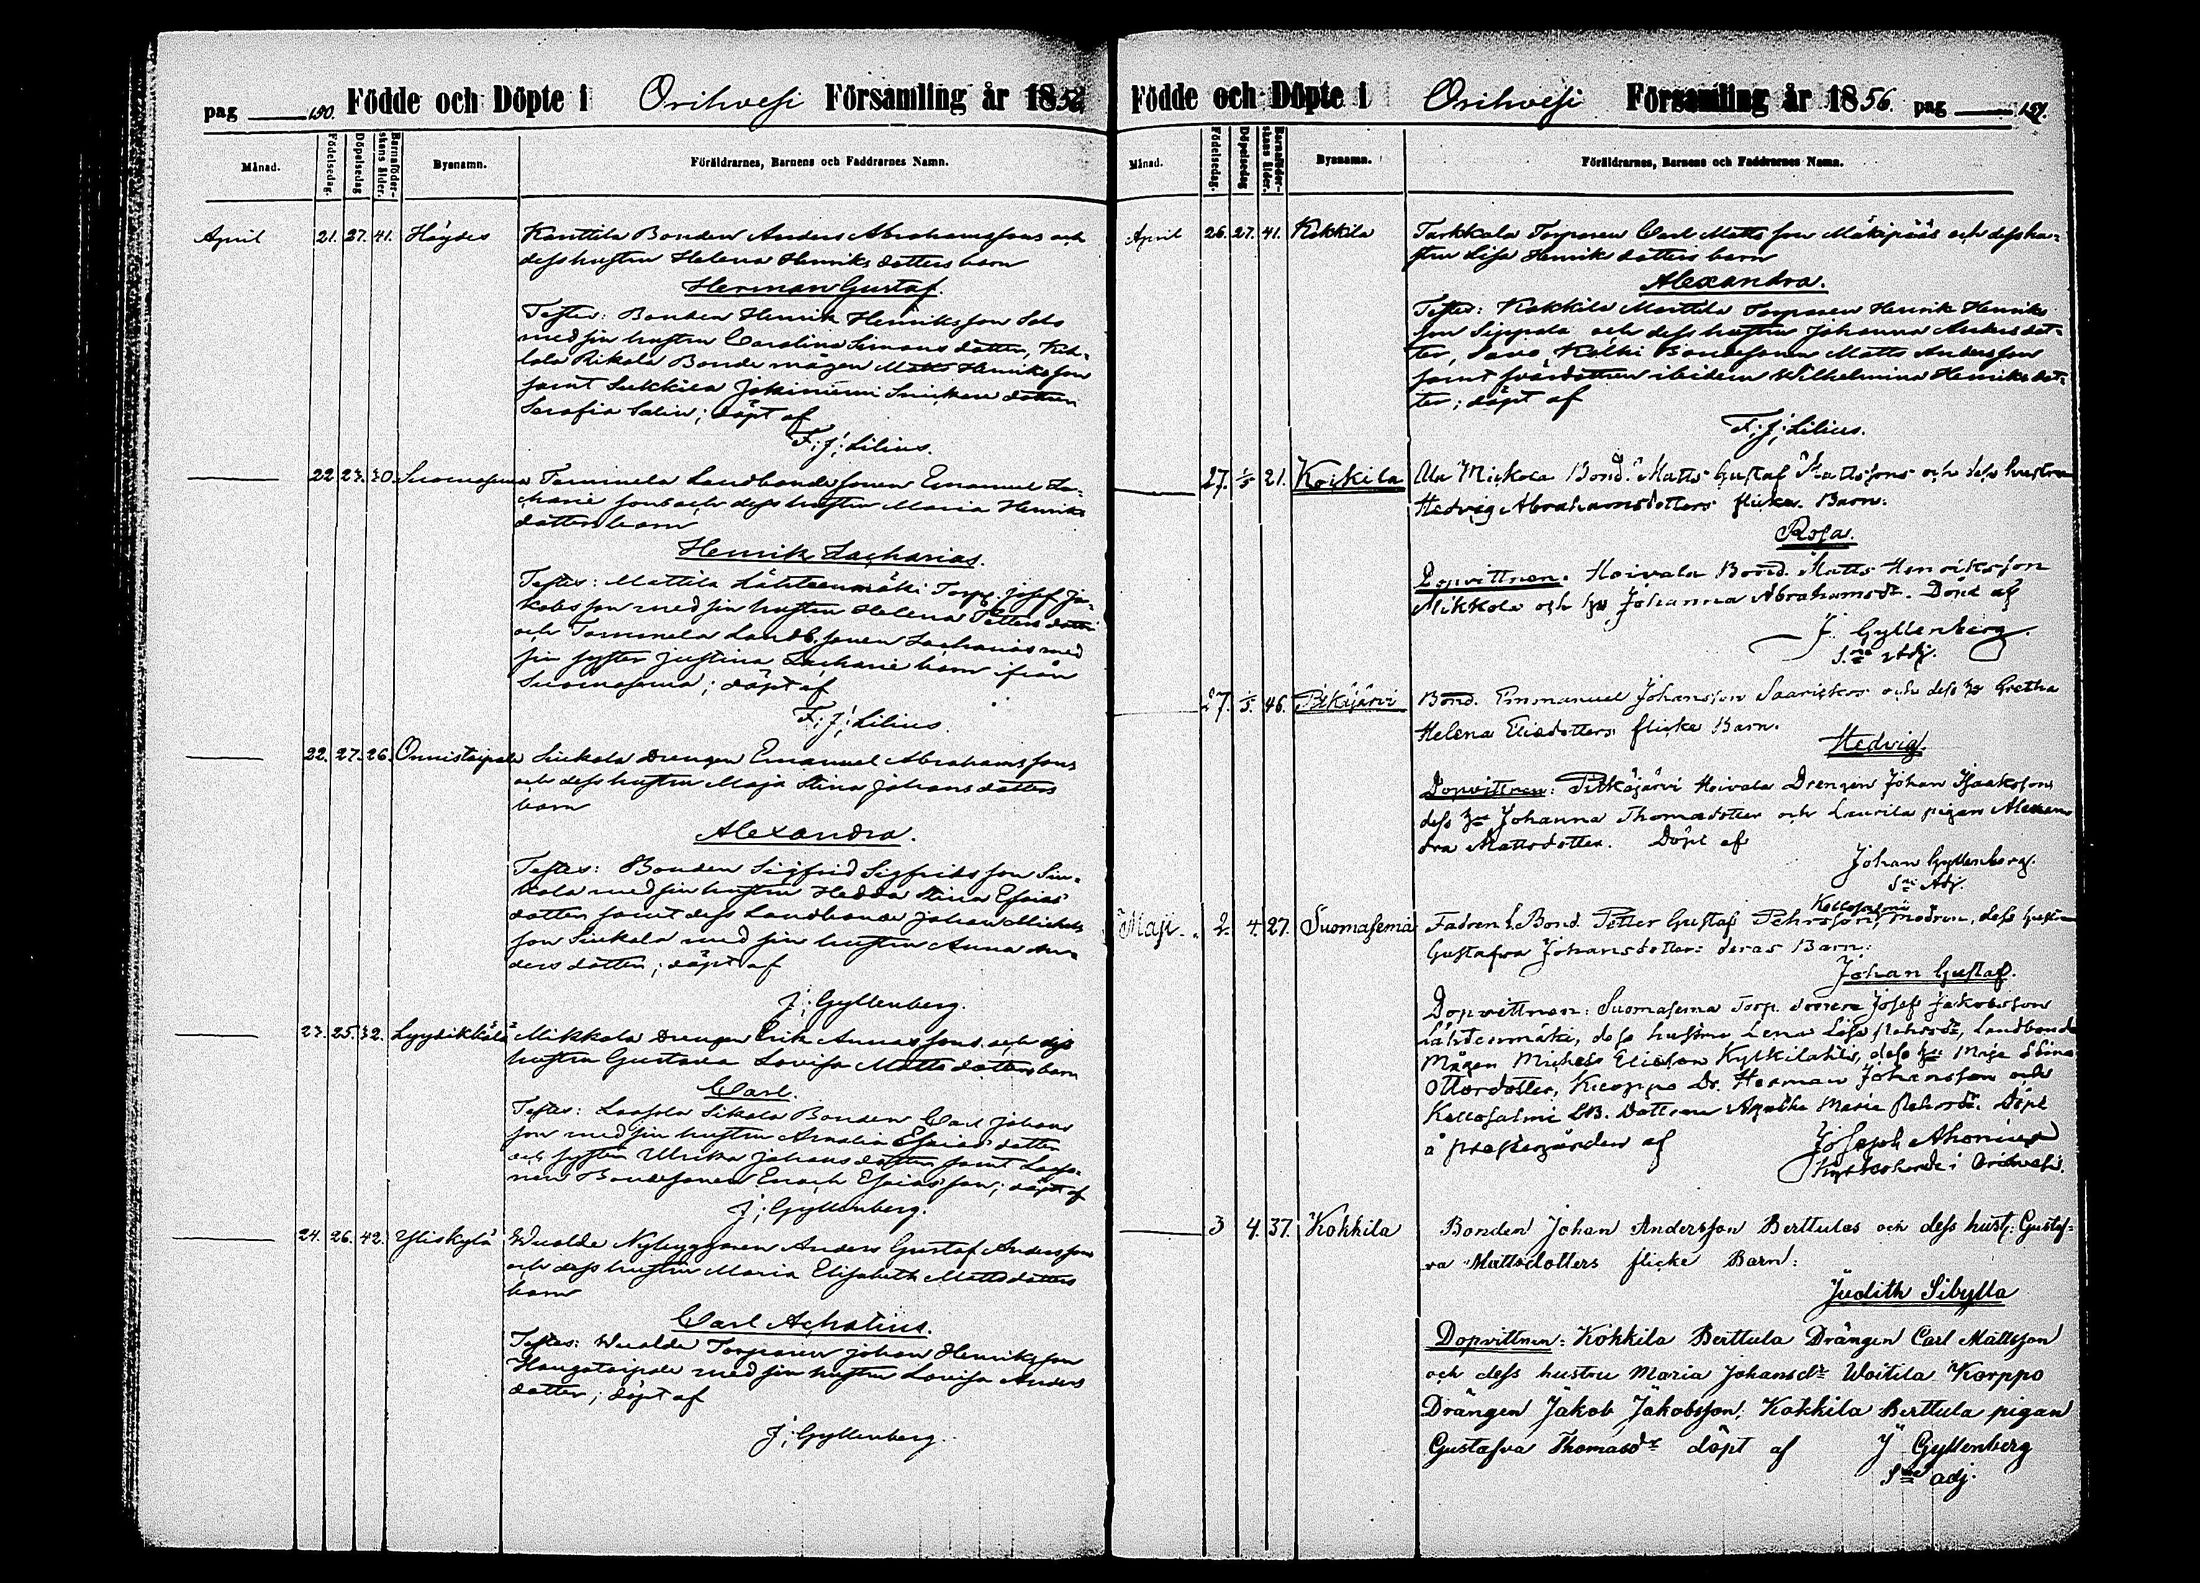 pag 150. Födde och Döpte i Orihvesi Församling år 1856
Månad. Födelsedag. Döpelsedag Barnaföderskans ålder. Bysnamn. Föräldrarnes, Barnens och Faddrarnes Namn.
April 21. 27. 41. Höydes Kanttila Bonden Anders Abrahamssons och
dess hustru Helena Henriksdotters barn
Herman Gustaf.
Testes: Bonden Henrik Henriksson Solo
med sin hustru Carolina Simonsdotter,
Rikala Bonde mågen Matts Henriksson
samt Sukkila Jokiniemi Snickare dottren
Serafia Salin; döpt af
F: J: Lilius.
22 23. 30. Suomasema Tammela Landbondesonen Emanuel Za-
charie sons och dess hustru Maria Henriks
dotters barn
Henrik Zacharias.
Testes: Mattila Lähteenmäki Torp. Josef Ja-
kobsson med sin hustru Helena Petters dotter
och Tammela Landb. sonen Zacharias med
sin syster Justina Zacharie barn ifrån
Suomasema; döpt af
F: J: Lilius.
22. 27. 26. Onnistaipale Sinkola Drengen Emanuel Abrahamssons
och dess hustru Maja Stina Johansdotters
barn
Alexandra.
Testes: Bonden Sigfrid Sigfridsson Sin-
kola med sin hustru Hedda Stina Esaias
dotter samt dess Landbonde Johan Michels
son Sinkola med sin hustru Anna An-
ders dotter; döpt af
J: Gyllenberg.
23. 25. 32. Lyydikkälä Mikkola Drengen Erik Annassons och dess
hustru Gustava Lovisa Matts dotters barn
Carl.
Testes: Sikala Bonden Carl Johans
son med sin hustru Amalia Esaias dotter
och syster Ulrika Johansdotter samt
Bondesonen Enoch Esaiasson; döpt af
J: Gyllenberg.
24. 26. 42. Yliskylä Wualde Nybyggaren Anders Gustaf Anderssons
och dess hustru Maria Elisabeth Mattsdotters
barn
Carl Achatius.
Testes: Wualde Torparen Johan Henriksson
Haugataipale med sin hustru Lovisa Anders
dotter; döpt af
J: Gyllenberg.
Födde och Döpte i Orihvesi Församling år 1856. pag 151.
Månad. Födelsedag. Döpelsedag Barnaföderskans ålder. Bysnamn. Föräldrarnes, Barnens och Faddrarnes Namn.
April 26. 27. 41. Kokkila Tarkkala Torparen Carl Matts son Mäkipääs och dess hu-
stru Lisa Henriks dotters barn
Alexandra.
Testes: Kokkila Marttila Torparen Henrik Henriks
son Seppala och dess hustru Johanna Andersdot-
ter, Savo, Kelhi Bondesonen Matts Andersson
samt svärdottren ibidem Wilhelmina Henriksdot-
ter; döpt af
F: J: Lilius.
27. 1/5 21. Kokkila Ala Mickola Bond. Matts Gustaf Mattssons och dess hustru
Hedvig Abrahamsdotters flicke Barn.
Rosa.
Dopvittnen. Hoivala Bond. Matts Henriksson
Mikkola och h:u Johanna Abrahamsdr. Döpt af
J. Gyllenberg.
S:ne Adj.
27. 1/5. 46. Pitkäjärvi Bond. Emmanuel Johansson Saarickos och dess h:u Gretha
Helena Eliedotters flicke Barn.
Hedvig.
Dopvittnen: Pitkäjärvi Hoivala Drengen Johan Isaaksson
dess h:u Johanna Thomasdotter och Laurila pigan Alexan
dra Mattsdotter. Döpt af
Johan Gyllenberg.
S:ne Adj.
Maji. 2. 4. 27. Suomasema Fadren L. Bond. Petter Gustaf Pehrsson, Kellosalmi modren, dess hustru
Gustafva Johansdotter: deras Barn:
Johan Gustaf.
Dopvittnen: Suomasema Torp. Josef Jakobsson
Lähteenmäki, dess hustru Lena Lisa Pehrsdr, Landbonde
Mågen Michels Eliesson Kylkilahti, dess h:u Maja Stina
Ottosdotter, Kuoppo Dr. Herman Johansson och
Kellosalmi LB. Dottren Agatha Maria Pehrsdr. Döpt
å prestegården af Joseph Ahonius
Kyrkoherde i Orihvesi.
3 4. 37. Kokkila Bonden Johan Andersson Berttulas och dess hust: Gustaf-
va Mattsdotters flicke Barn:
Judith Sibylla
Dopvittnen: Kokkila Berttula Drängen Carl Mattsson
och dess hustru Maria Johansdr Woitila Korppo
Drängen Jakob Jakobsson, Kokkila Berttula pigan
Gustafva Thomasdr döpt af J Gyllenberg
S:ne adj.